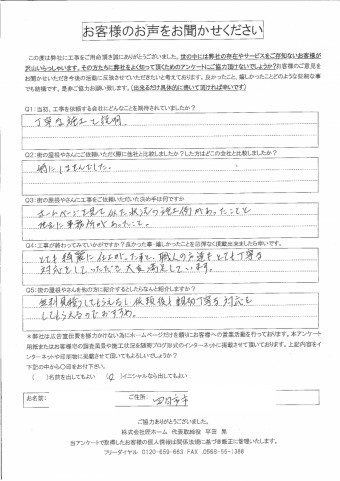 お客様のお声をお聞かせください
この度は弊社に工事をご用命頂き誠にありがとうございました。世の中には弊社の存在やサービスをご存知ないお客様が
沢山いらっしゃいます。その方たちに弊社をよく知って頂くためのアンケートにご協力頂けないでしょうか?お客様のご意見を
お聞かせいただき今後の活動に反映させていただきたいと考えております。良かったこと、嬉しかったことどのような些細な事
でも結構です。是非ご協力お願い致します。(出来るだけ具体的に書いて頂ければ幸いです)
Q1:当初、工事を依頼する会社にどんなことを期待されていましたか?
丁寧な施工と説明
Q2:街の屋根やさんにご依頼いただく際に他社と比較しましたか?した方はどこの会社と比較しましたか?
特にしませんでした。
Q3:街の屋根やさんに工事をご依頼いただいた決め手は何ですか
ホームページを見て似た状況の施工例があったことと
に事務所があったこと。
Q4:工事が終わってみていかがですか?良かった事・嬉しかったことを忌憚なく頂戴出来ましたら幸いです。
とても綺麗に仕上がった事と、職人の方達もとても丁寧な
対応をしていただき大変満足しています。
Q5:街の屋根やさんを他の方に紹介するとしたらなんと紹介しますか?
無料見積りしてもらえるし依頼後も親切丁寧な対応を
してもらえるのでおすすめ。
※弊社は広告宣伝費を極力かけない為にホームページだけを頼りお客様への営業活動を行っております。本アンケート
用紙またはお客様宅の調査風景や施工状況を随時ブログ形式のインターネットに掲載させて頂いております。上記内容をイ
ンターネットや印刷物に掲載させて頂いてもよろしいでしょうか?
下記の中から〇印をお付け下さい。
( )名前を出してもよい (○)イニシャルなら出してもよい
お名前: ご住所:
ご協力ありがとうございました。
株式会社匠ホーム 代表取締役 平田 晃
当アンケートで取得したお客様の個人情報は関係法規に基づき厳正に管理いたします。
フリーダイヤル 0120-659-663 FAX 0568-55-1388